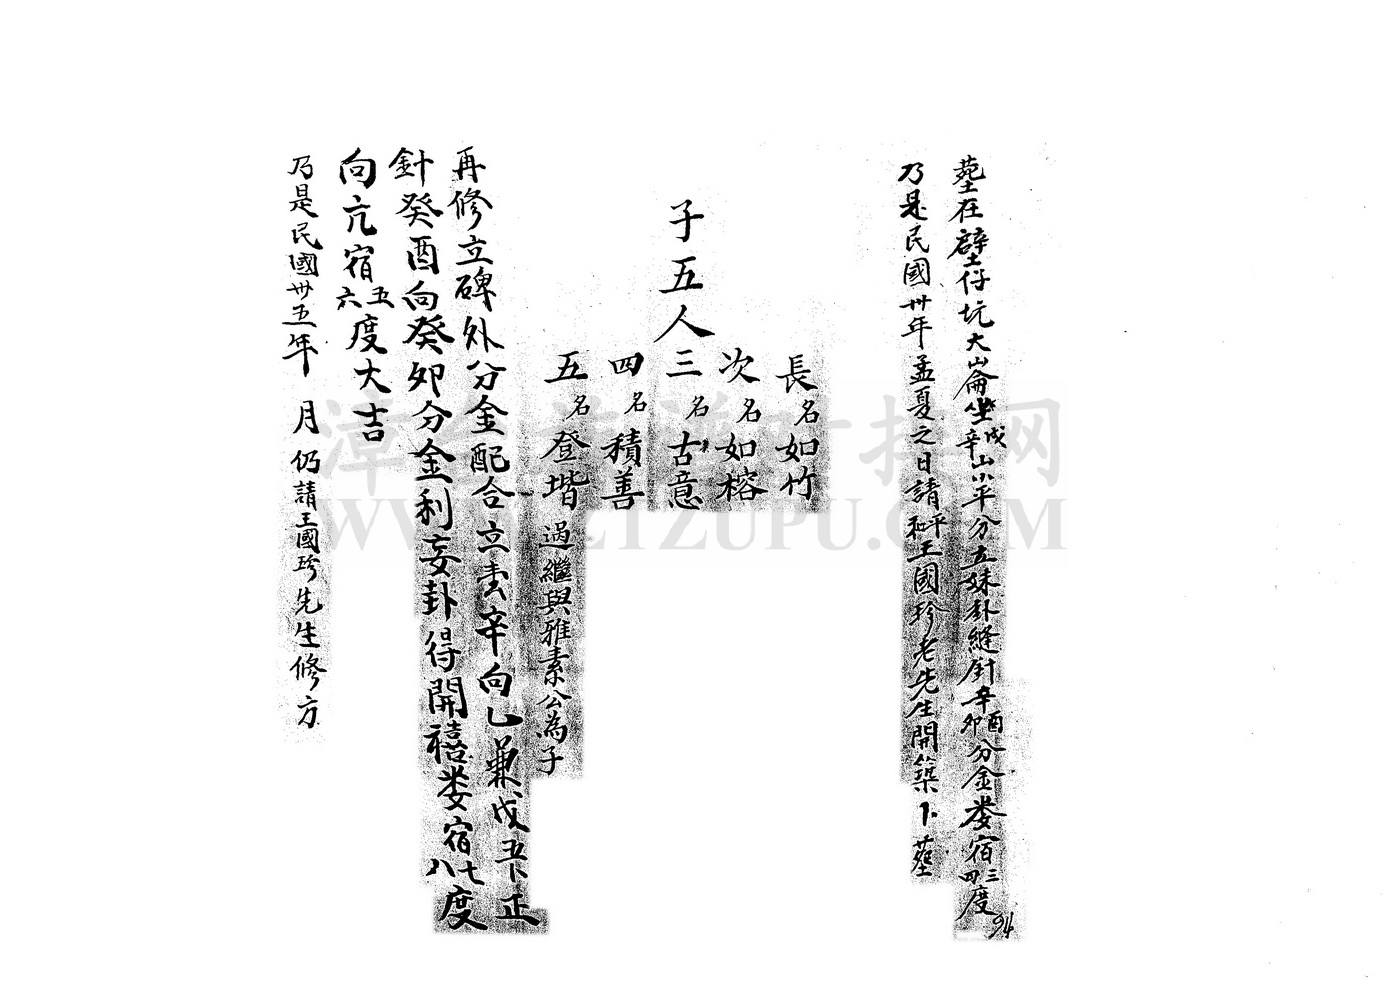 塟在壁仔坑大崙坐戌辛山小平分五妹卦縫針辛酉卯分金婁宿三四度
乃是民國卅年孟夏之日請平和王國珍老先生開築卜塟
子五人
長名如竹
次名如榕
三名古意
四名積善
五名登堦過繼與雅素公為子
再修立碑外分金配合立辛向乙兼戌五卜正
針癸酉向癸卯分金利妄卦得開禧婁宿七八度
向亢宿五六度大吉
乃是民國卅五年 月仍請王國珍先生修方
94
WWW.ZTZUPU.COM